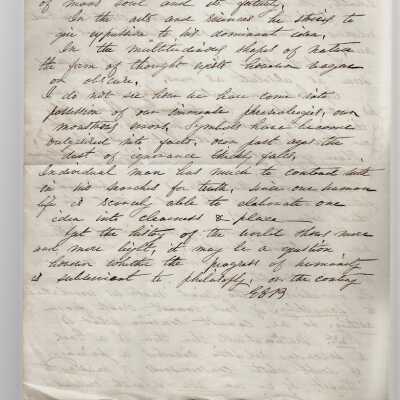 of man's soul and its futurity.
In the arts and sciences he strives to
give expression to his dominant idea.
In the multitudinous shapes of nature
the form of thought exists however vague
or obscure.
I do not see how we have come into
possession of our immense phraseologies, our
monstrous errors. Symbols have become
into facts, over past ages the
dust of ignorance thickly falls.
Individual man has much to contend with
in his searches for truth, since one human
life is scarcely able to elaborate one
idea into clearness & place
Yet the history of the world shows more
and more light, it may be a question
however whether the progress of humanity
is subservient to philosophy, or the contrary